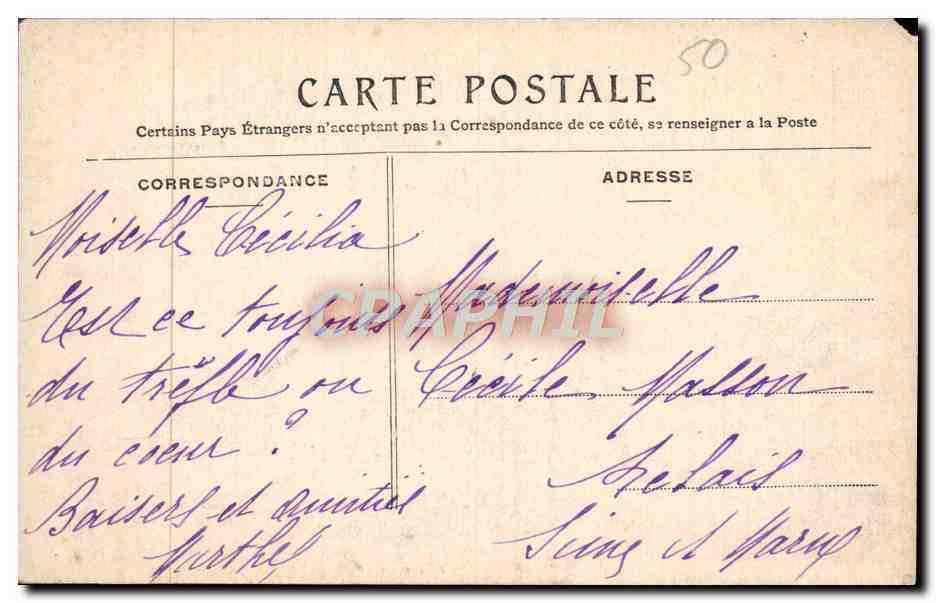 50
CARTE POSTALE
Certains Pays Étrangers n'acceptant pas la Correspondance de ce côté, se renseigner a la Poste
CORRESPONDANCE
Moiselle Cécilia
Est ce toujours
du trèfle ou
du coeur ?
Baisers et amitiés
Marthe
ADRESSE
Mademoiselle
Cécile Masson
Relais
Seine et Marne
CPAPHIL